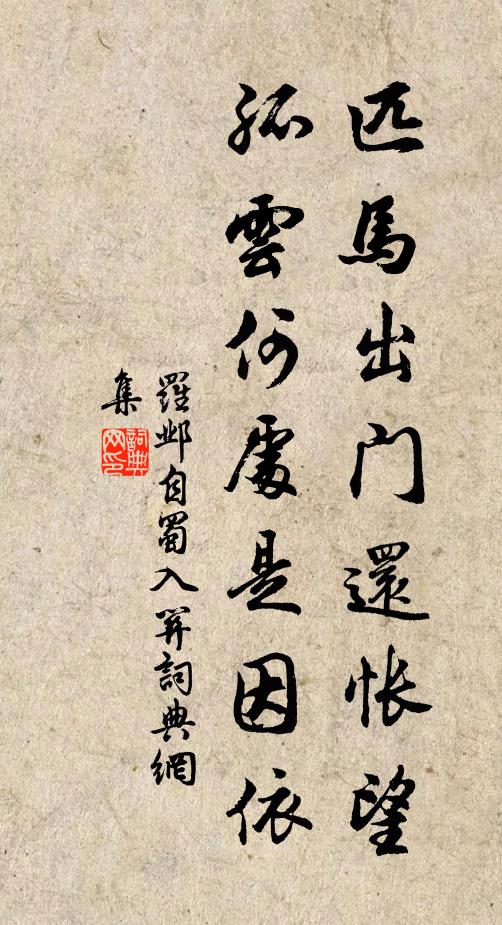 匹馬出門還悵望
孤雲何處是因依
羅鄴自蜀入關詞典網
集
詞典
网印